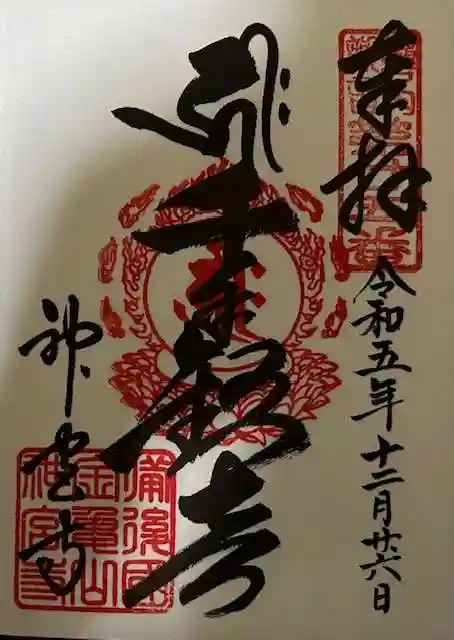 奉拝
令和五年十二月廿六日
𑖮𑖿𑖨𑖱𑖾
千手観音
神宮寺
備後國
金亀山
神宮寺